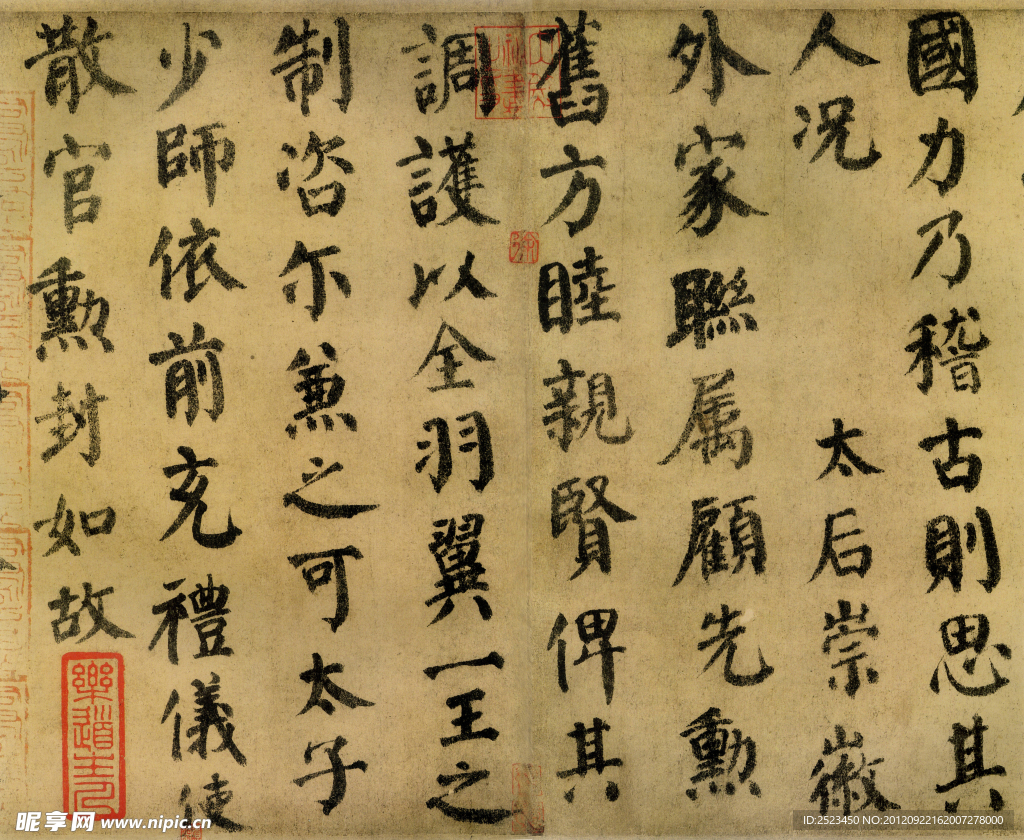 國力乃稽古則思其
人況　太后崇徽
外家聯属顧先勲
舊方睦親賢俾其
調護以全羽翼一王之
制咨尓兼之可太子
少師依前充禮儀使
散官勲封如故
昵享网 www.nipic.cn
ID:2523450 NO:20120922162007278000